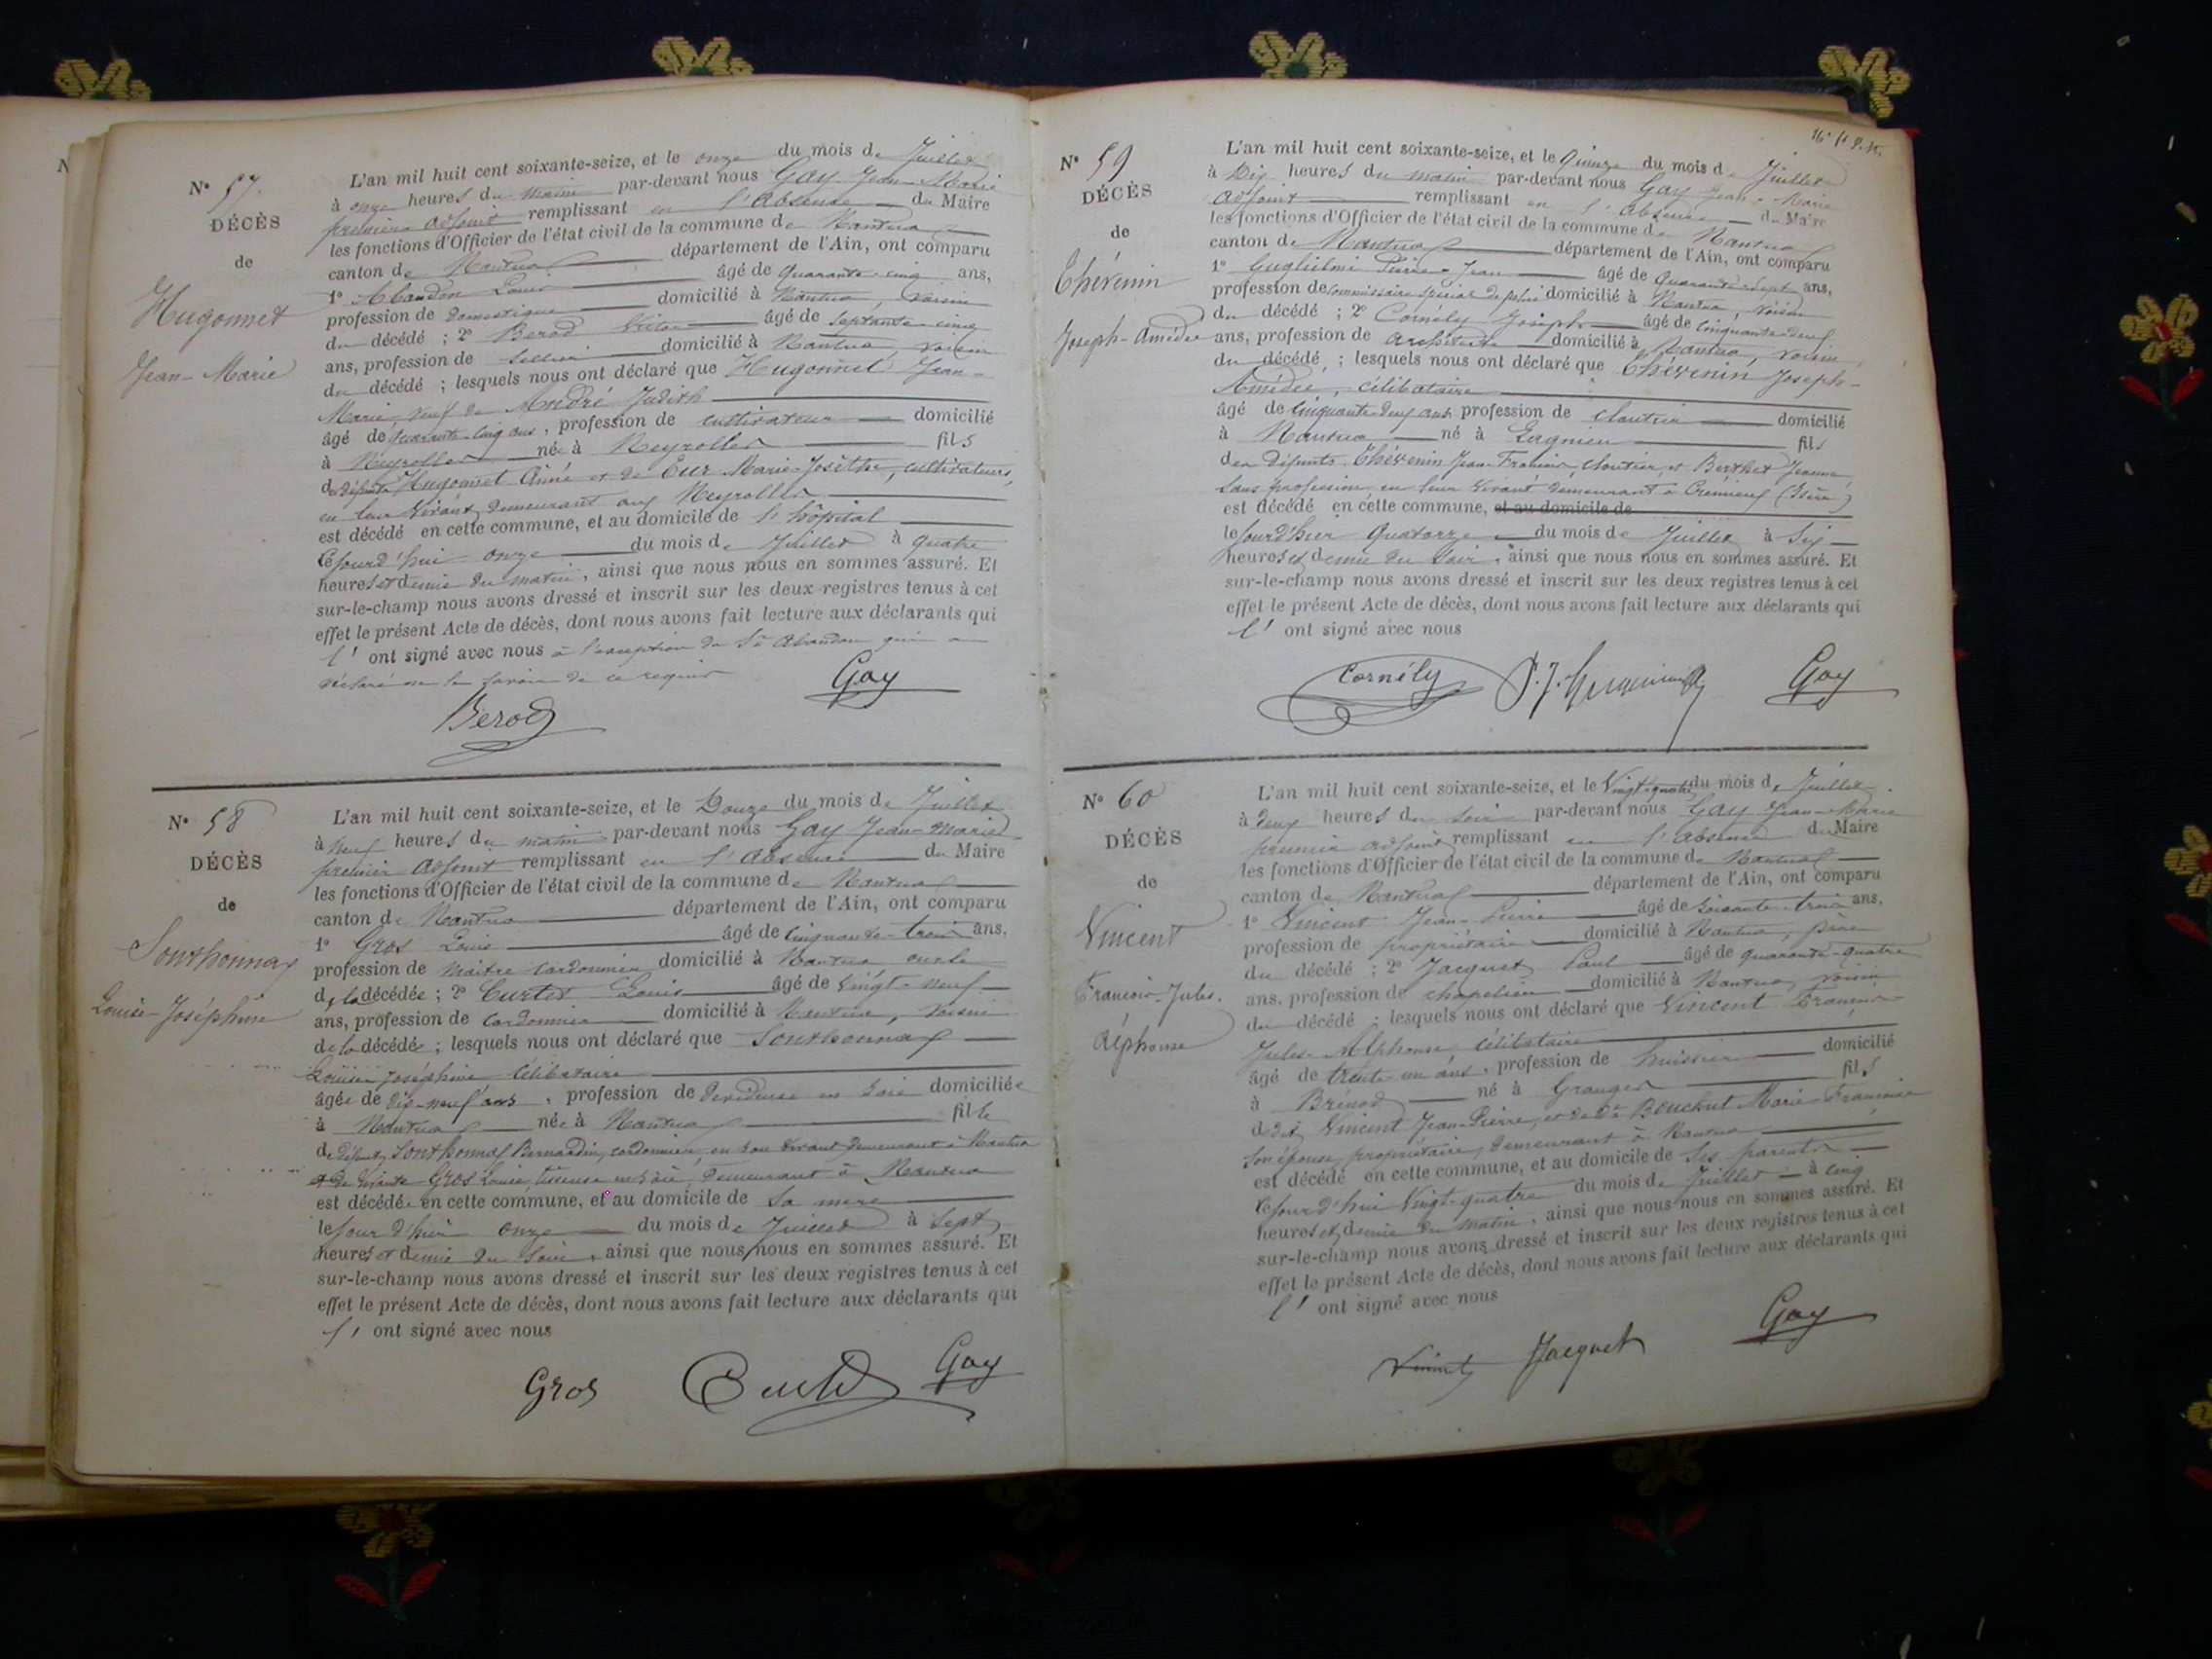 N
N° 57.
DÉCÈS
de
Hugonnet
Jean-Marie
L'an mil huit cent soixante-seize, et le onze du mois de Juillet
à onze heures du matin par-devant nous Gay Jean-Marie
premier adjoint remplissant en l'absence du Maire
les fonctions d'Officier de l'état civil de la commune de Nantua
canton de Nantua département de l'Ain, ont comparu
1° Abandon Louis âgé de quarante-cinq ans,
profession de domestique domicilié à Nantua, voisin
du décédé ; 2° Berod Victor âgé de septante-cinq
ans, profession de sellier domicilié à Nantua, voisin
du décédé ; lesquels nous ont déclaré que Hugonnet Jean-
Marie, veuf de André Judith
âgé de quarante-cinq ans, profession de cultivateur domicilié
à Neyrolles né à Neyrolles fils
de défunts Hugonnet Aimé et de Eux Marie-Josèthe, cultivateurs,
en leur vivant demeurant aux Neyrolles
est décédé en cette commune, et au domicile de l'hôpital
cejourd'hui onze du mois de Juillet à quatre
heures et demie du matin, ainsi que nous nous en sommes assuré. Et
sur-le-champ nous avons dressé et inscrit sur les deux registres tenus à cet
effet le présent Acte de décès, dont nous avons fait lecture aux déclarants qui
l' ont signé avec nous à l'exception du Sr Abandon qui a
déclaré ne le savoir de ce requis
Gay
Berod
N° 58
DÉCÈS
de
Sonthonnax
Louise-Joséphine
L'an mil huit cent soixante-seize, et le Douze du mois de Juillet
à neuf heures du matin par-devant nous Gay Jean-Marie
premier adjoint remplissant en l'absence du Maire
les fonctions d'Officier de l'état civil de la commune de Nantua
canton de Nantua département de l'Ain, ont comparu
1° Gros Louis âgé de cinquante-trois ans,
profession de maître cordonnier domicilié à Nantua oncle
de la décédée ; 2° Curtet Louis âgé de vingt-neuf
ans, profession de cordonnier domicilié à Nantua, voisin
de la décédée ; lesquels nous ont déclaré que Sonthonnax
Louise Joséphine célibataire
âgée de dix-neuf ans, profession de devideuse en soie domiciliée
à Nantua née à Nantua fille
de défunt Sonthonnax Bernardin, cordonnier, en son vivant demeurant à Nantua
et de vivante Gros Louise, tisseuse en soie, demeurant à Nantua
est décédée en cette commune, et au domicile de sa mère
le jour d'hier onze du mois de Juillet à sept
heures et demie du soir, ainsi que nous nous en sommes assuré. Et
sur-le-champ nous avons dressé et inscrit sur les deux registres tenus à cet
effet le présent Acte de décès, dont nous avons fait lecture aux déclarants qui
l' ont signé avec nous
Gros Curtet Gay
N° 59
DÉCÈS
de
Thévenin
Joseph-Amédée
L'an mil huit cent soixante-seize, et le quinze du mois de Juillet
à Dix heures du matin par-devant nous Gay Jean-Marie
adjoint remplissant en l'absence du Maire
les fonctions d'Officier de l'état civil de la commune de Nantua
canton de Nantua département de l'Ain, ont comparu
1° Guglielmi Pierre-Jean âgé de quarante-sept ans,
profession de commissaire spécial de police domicilié à Nantua, voisin
du décédé ; 2° Cornély Joseph âgé de cinquante-deux
ans, profession de architecte domicilié à Nantua, voisin,
du décédé ; lesquels nous ont déclaré que Thévenin Joseph-
Amédée, célibataire
âgé de cinquante-deux ans profession de cloutier domicilié
à Nantua né à Lagnieu fils
des défunts Thévenin Jean-François, cloutier, et Berthet Jeanne,
sans profession en leur vivant demeurant à Crémieux (Isère)
est décédé en cette commune, et au domicile de
le jour d'hier Quatorze du mois de Juillet à six
heures et demie du soir, ainsi que nous nous en sommes assuré. Et
sur-le-champ nous avons dressé et inscrit sur les deux registres tenus à cet
effet le présent Acte de décès, dont nous avons fait lecture aux déclarants qui
l' ont signé avec nous
Cornély Gay
N° 60
DÉCÈS
de
Vincent
François-Jules.
Alphonse
L'an mil huit cent soixante-seize, et le Vingt-quatre du mois de Juillet
à deux heures du soir par-devant nous Gay Jean-Marie
premier adjoint remplissant en l'absence du Maire
les fonctions d'Officier de l'état civil de la commune de Nantua
canton de Nantua département de l'Ain, ont comparu
1° Vincent Jean-Pierre âgé de soixante-trois ans,
profession de propriétaire domicilié à Nantua, père
du décédé ; 2° Jacquet Paul âgé de quarante-quatre
ans, profession de chapelier domicilié à Nantua, voisin
du décédé ; lesquels nous ont déclaré que Vincent François
Jules-Alphonse, célibataire
âgé de trente un ans, profession de huissier domicilié
à Brénod né à Granges fils
dudit Vincent Jean-Pierre, et de De Bouchut Marie-Françoise
son épouse, propriétaire, demeurant à Nantua
est décédé en cette commune, et au domicile de ses parents
cejourd'hui vingt-quatre du mois de Juillet à cinq
heures et demie du matin, ainsi que nous nous en sommes assuré. Et
sur-le-champ nous avons dressé et inscrit sur les deux registres tenus à cet
effet le présent Acte de décès, dont nous avons fait lecture aux déclarants qui
l' ont signé avec nous
Vincent Jacquet Gay